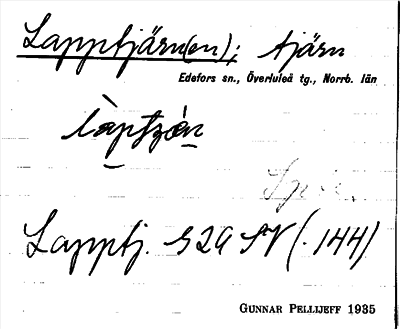 Lapptjärn(en); tjärn
Edefors sn., Överluleå tg., Norrb. län
Lapptj. 329 SV (. 144)
GUNNAR PELLIJEFF 1935